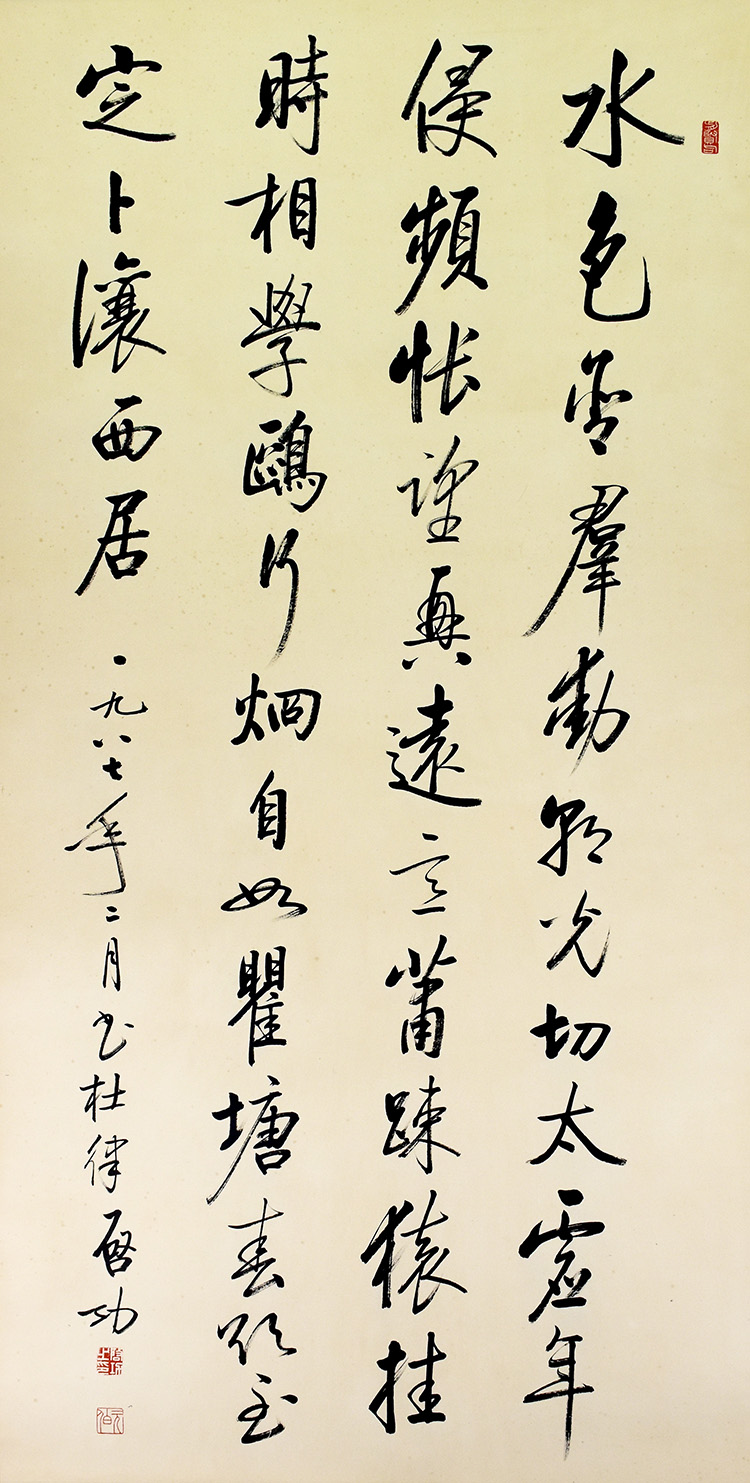 水色含羣動朝光切太虛年
侵頻悵望興遠壹蕭踈猿挂
時相學鷗行烱自如瞿塘春欲至
定卜瀼西居 一九八七年二月書杜律 啓功